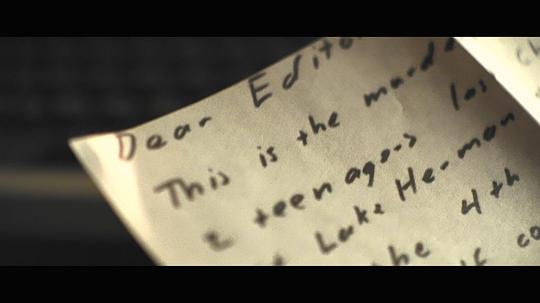 Dear Edito
This is the murde
2 teenagers las
t Lake Herman
the 4th